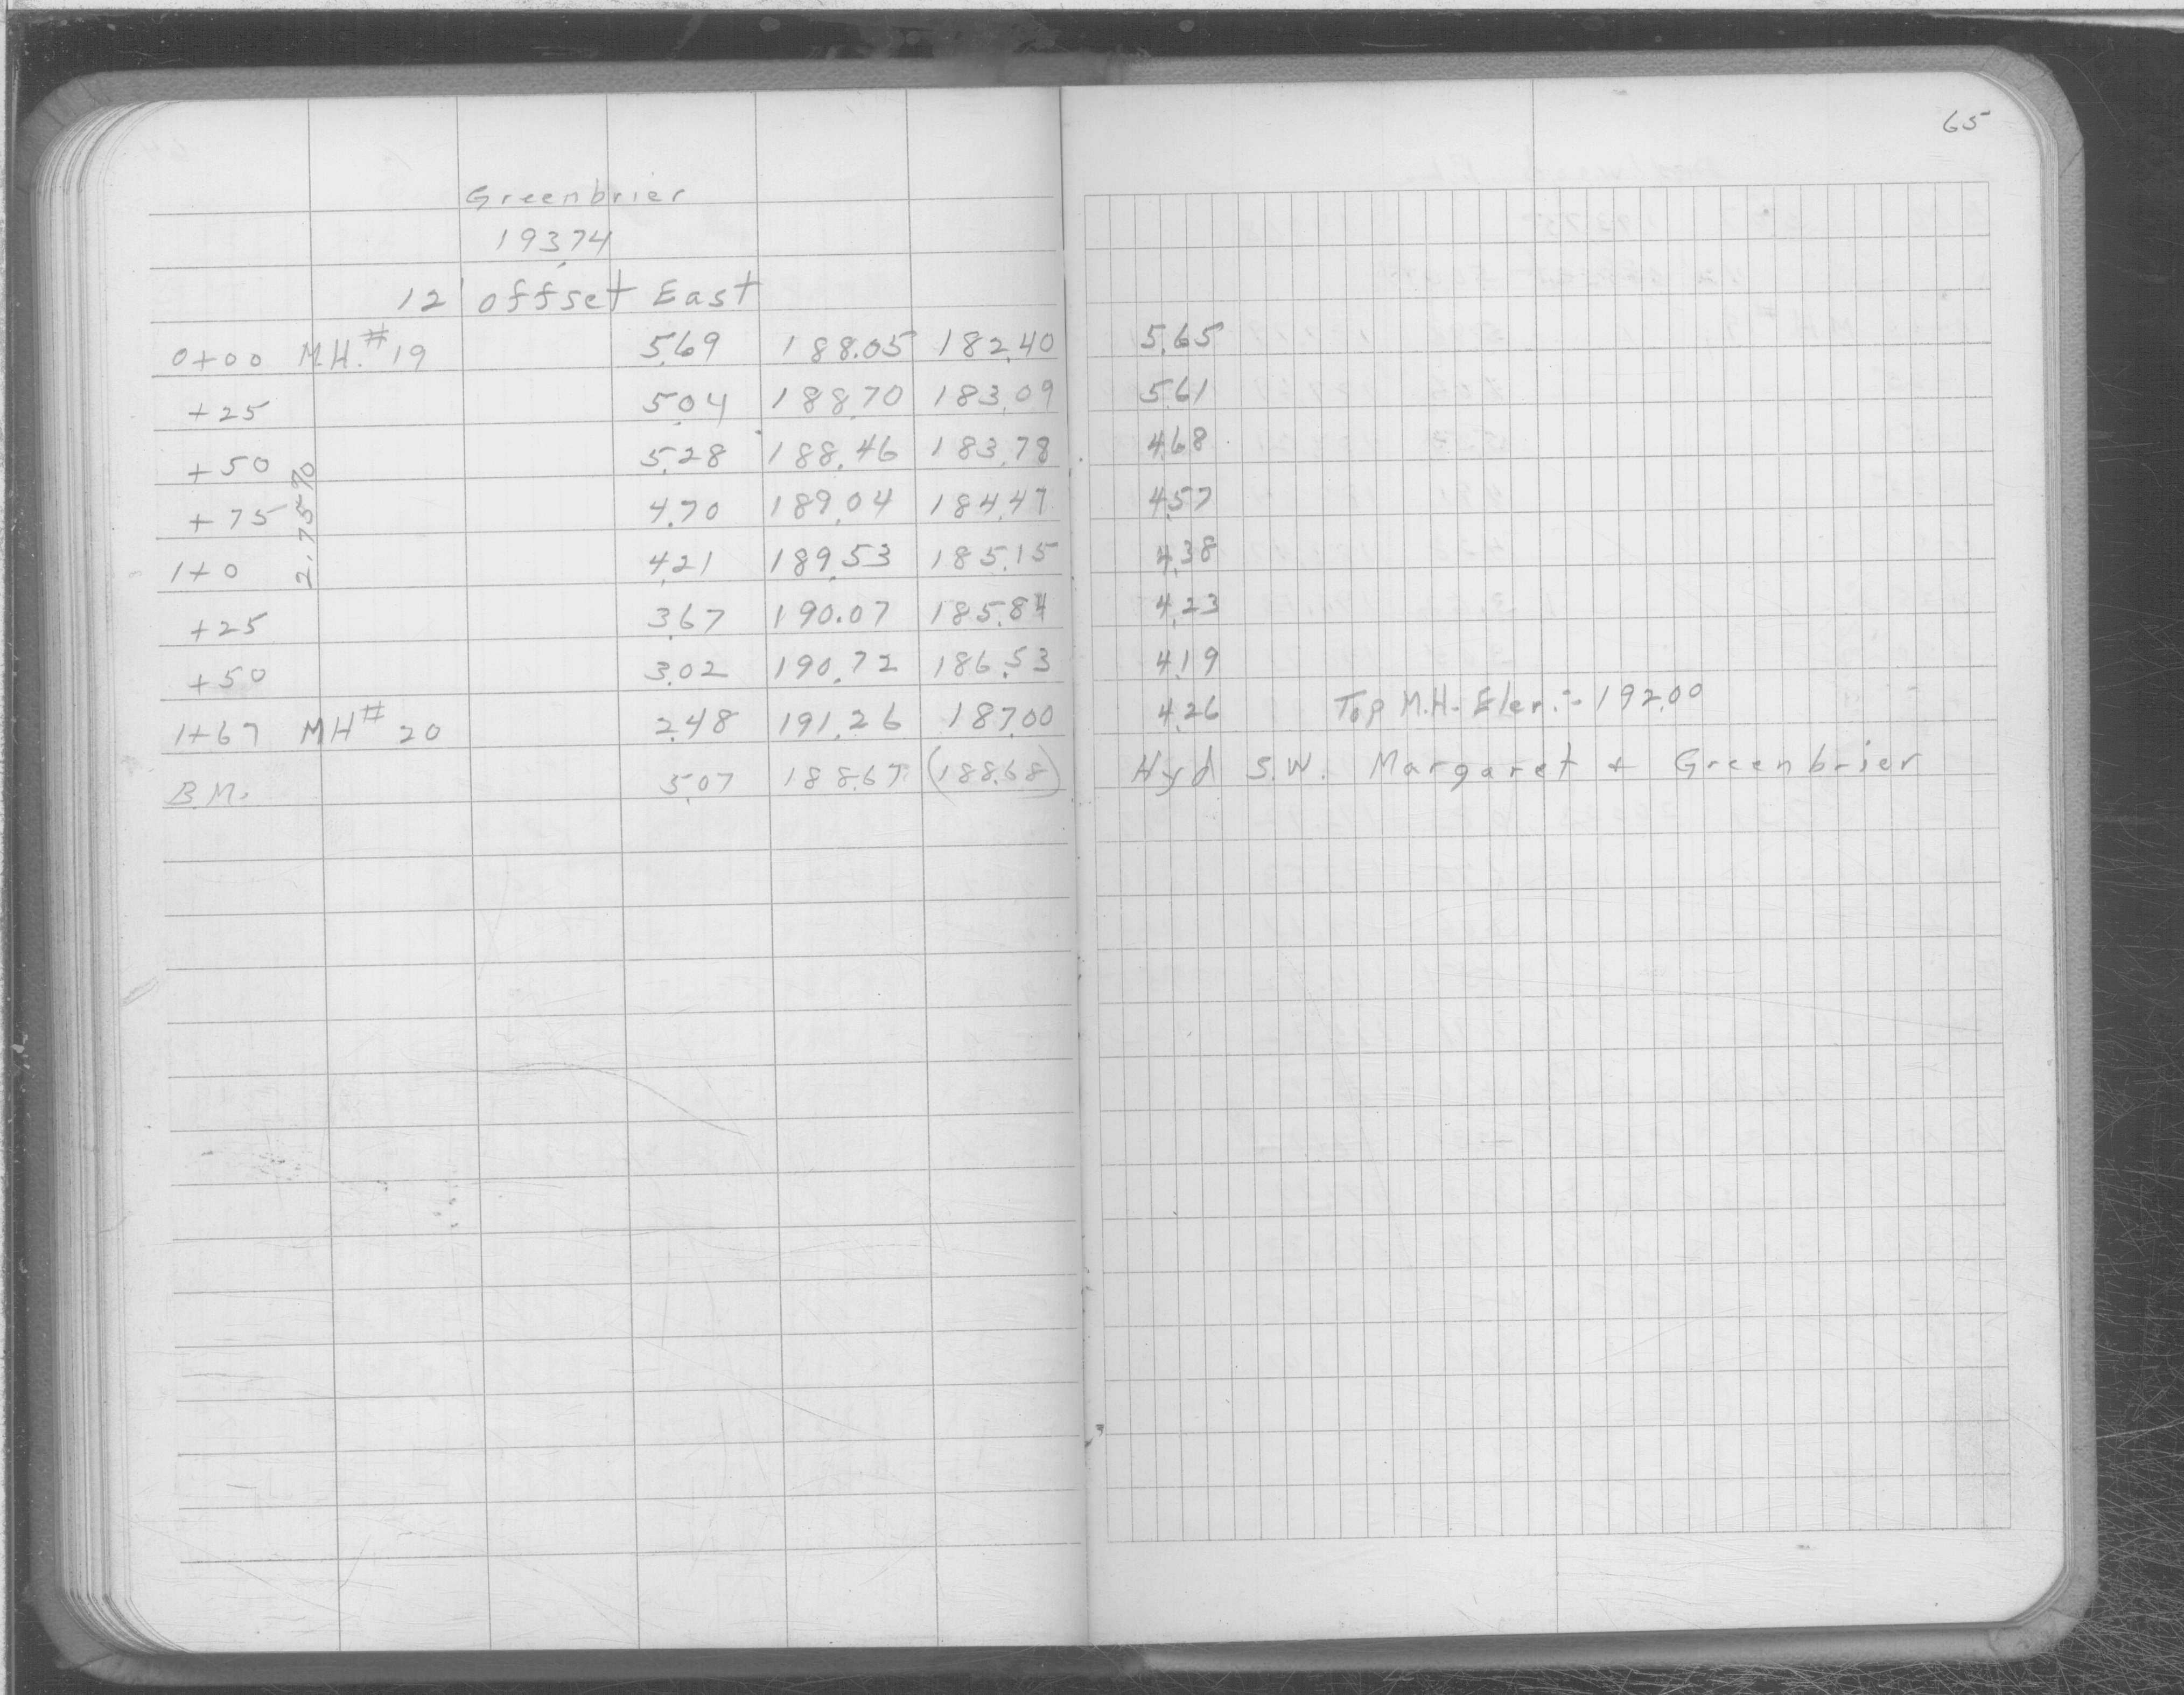 65
Greenbrier
193.74
12' offset East
0+00 M.H.#19 5.69 188.05 182.40 5.65
+25 5.04 188.70 183.09 5.61
+50 5.28 188.46 183.78 4.68
+75 4.70 189.04 184.47 4.57
2.75%
1+0 4.21 189.53 185.15 4.38
+25 3.67 190.07 185.84 4.23
+50 3.02 190.72 186.53 4.19
1+67 MH# 20 2.48 191.26 187.00 4.26 Top M.H. Elev.:- 192.00
B.M. 5.07 188.67 (188.68) Hyd S.W. Margaret + Greenbrier